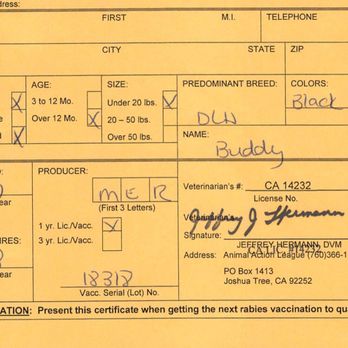 dress:
FIRST M.I. TELEPHONE
CITY STATE ZIP
AGE: SIZE: PREDOMINANT BREED: COLORS:
3 to 12 Mo. Under 20 lbs. Black
Over 12 Mo. 20 – 50 lbs. DLH
Over 50 lbs. NAME:
Buddy
PRODUCER: Veterinarian's #: CA 14232
MER License No.
(First 3 Letters) Jeffrey J Hermann
1 yr. Lic./Vacc. Veterinarian's
3 yr. Lic./Vacc. Signature: JEFFREY HERMANN, DVM
CA LIC #14232
IRES: Address: Animal Action League (760)366-1
ear PO Box 1413
18318 Joshua Tree, CA 92252
Vacc. Serial (Lot) No.
ATION: Present this certificate when getting the next rabies vaccination to qu